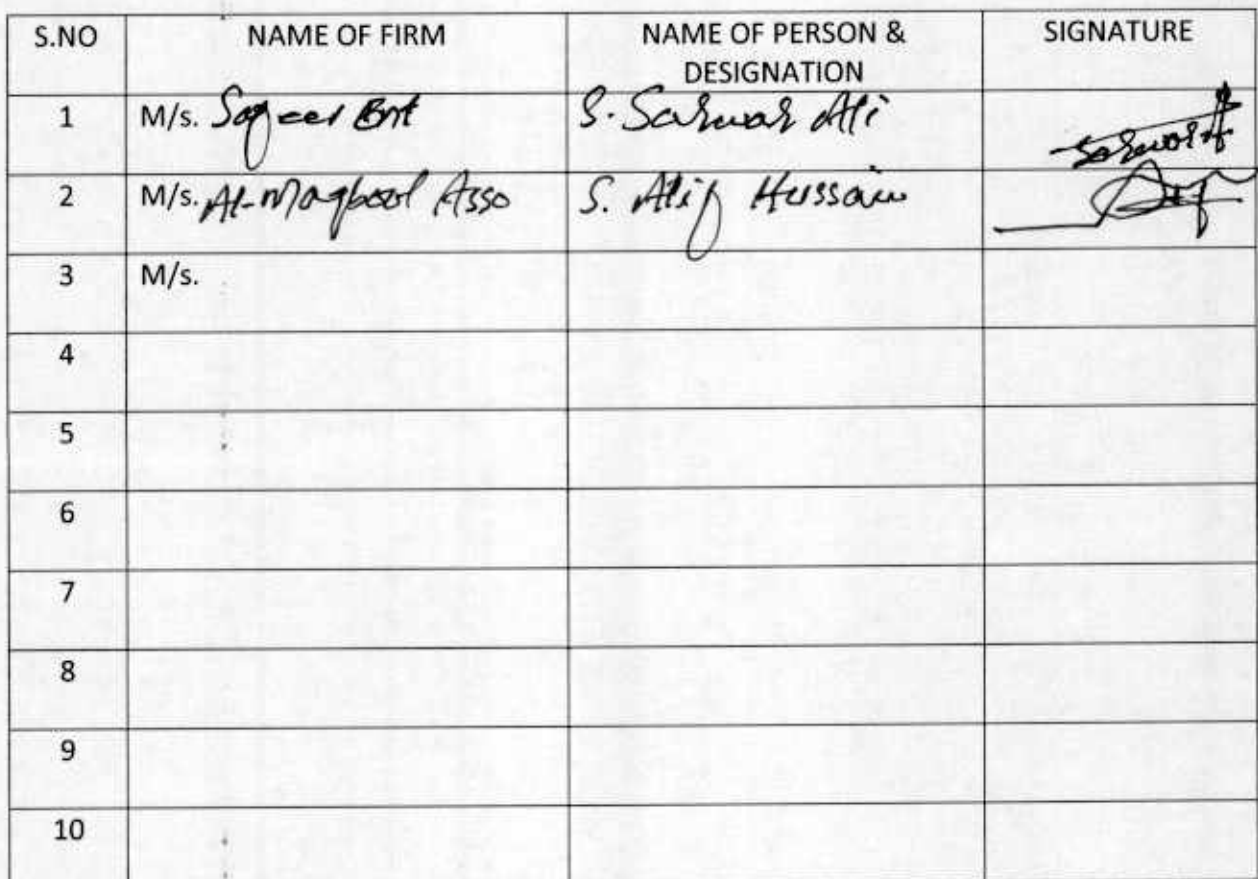 S.NO NAME OF FIRM NAME OF PERSON & SIGNATURE
DESIGNATION
1 M/s. Sageer Ent S. Sarwar Ali
2 M/s. Al-Maqbool Asso S. Atif Hussain
3 M/s.
4
5
6
7
8
9
10